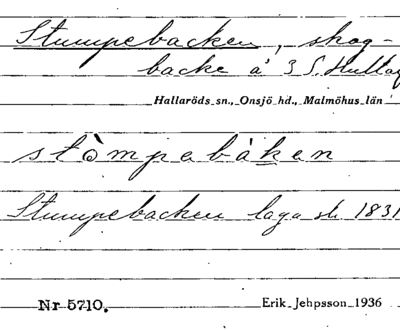 Stumpebacken, skog-
backe å 3 S. Hulta
Hallaröds sn., Onsjö hd., Malmöhus län
stòmpebàken
Stumpebacken laga sk. 1831
Nr 5710.
Erik Jehpsson 1936